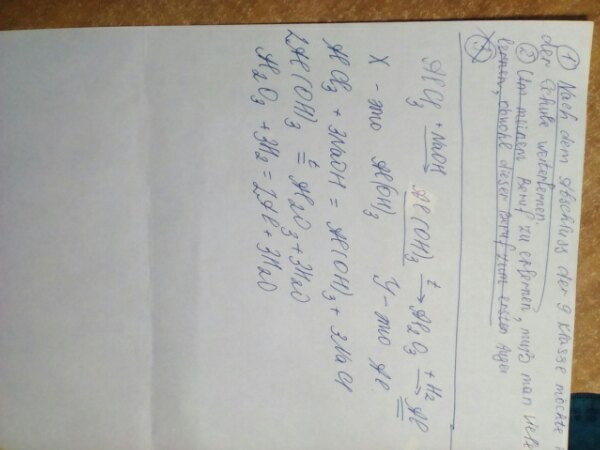 ① Nach dem Abschluss der 9 Klasse möchte
der Schule weiterlernen.
② Um meinen Beruf zu erlernen, muß man viele
lernen, dieser Beruf zum ersten
AlCl₃ + NaOH → Al(OH)₃ t→ Al₂O₃ + H₂ → Al
X - это Al(OH)₃ Y - это Al.
AlCl₃ + 3NaOH = Al(OH)₃ + 3NaCl
2Al(OH)₃ t= Al₂O₃ + 3H₂O
Al₂O₃ + 3H₂ = 2Al + 3H₂O